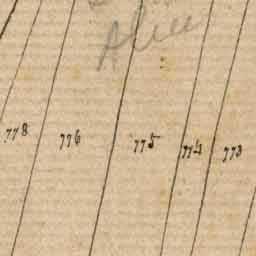 778 776 775 774 773